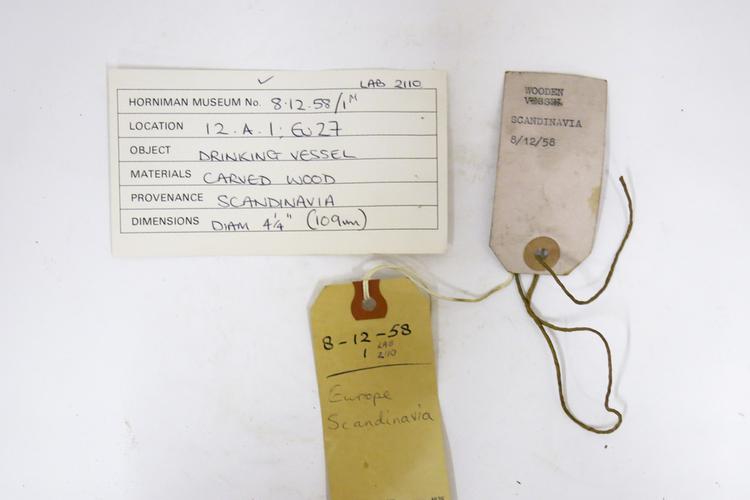 LAB 2110
HORNIMAN MUSEUM No. 8.12.58/1M
LOCATION 12.A.1; EU27
OBJECT DRINKING VESSEL
MATERIALS CARVED WOOD
PROVENANCE SCANDINAVIA
DIMENSIONS DIAM 4¼" (109mm)
WOODEN
VESSEL
SCANDINAVIA
8/12/58
8-12-58
1 LAB
2110
Europe
Scandinavia